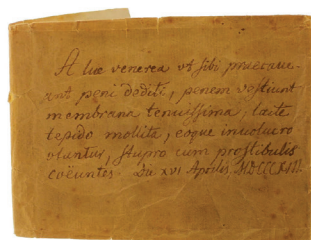 A lue venerea vt sibi praecaue-
ant peni dediti, penem vestiunt
membrana tenuissima, lacte
tepido mollita, eoque inuolucro
vtuntur, stupro cum prostibulis
coëuntes. Die xvi Aprilis